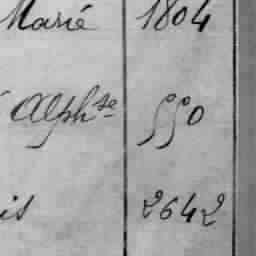 Marié 1804
Alph^se 550
is 2642